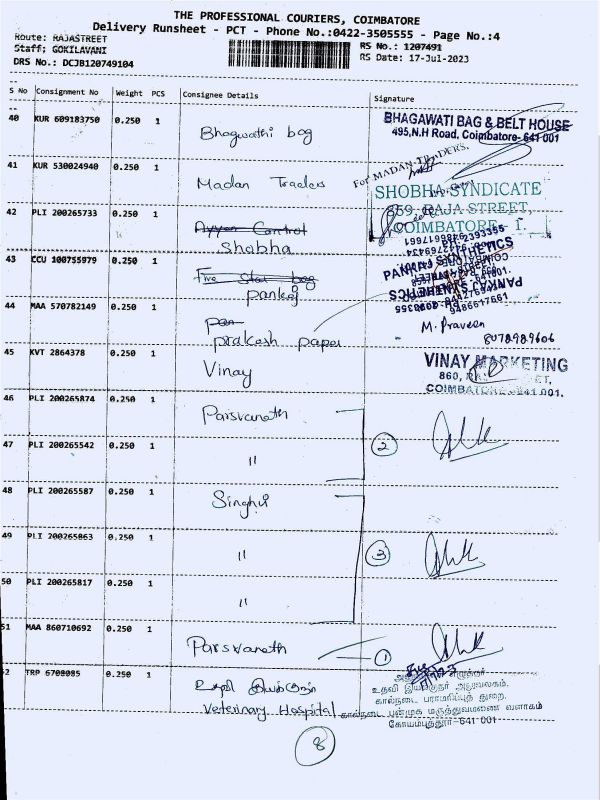 THE PROFESSIONAL COURIERS, COIMBATORE
Delivery Runsheet - PCT - Phone No.:0422-3505555 - Page No.:4
Route: RAJASTREET
Staff; GOKILAVANI
DRS No.: DCJB120749104
RS No.: 1207491
RS Date: 17-Jul-2023
S No Consignment No Weight PCS Consignee Details Signature
40 KUR 609183750 0.250 1 Bhagwathi bag
BHAGAWATI BAG & BELT HOUSE
495,N.H Road, Coimbatore- 641 001
41 KUR 530024940 0.250 1 Madan Traders
For MADAN TRADERS,
42 PLI 200265733 0.250 1 Ayyan Control
Shobha
SHOBHA SYNDICATE
859, RAJA STREET,
COIMBATORE - 1.
43 CCU 100755979 0.250 1 Five Star bag
pankaj
PANKAJ SYNTHETICS
44 MAA 570782149 0.250 1 Pan
prakash paper
M. Praveen
8078989606
45 KVT 2864378 0.250 1 Vinay
VINAY MARKETING
860,
COIMBATORE - 641 001.
46 PLI 200265874 0.250 1 Parsvanath
47 PLI 200265542 0.250 1 "
2
48 PLI 200265587 0.250 1 Singhvi
49 PLI 200265863 0.250 1 "
3
50 PLI 200265817 0.250 1 "
51 MAA 860710692 0.250 1 Parsvanath
1
52 TRP 6708085 0.250 1 உதவி இயக்குநர்
Veterinary Hospital
உதவி இயக்குநர் அலுவலகம்,
கால்நடை பராமரிப்புத் துறை,
கால்நடை பன்முக மருத்துவமனை வளாகம்
கோயம்புத்தூர்-641 001
8